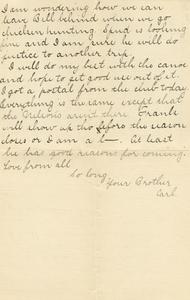 I am wondering how we can
leave Bill behind when we go
chicken hunting. Spud is looking
fine and I am sure he will do
justice to another trip.
I will do my best with the canoe
and hope to get good use out of it.
I got a postal from the club today.
Everything is the same except that
the aren't there. Frank
will show up tho before the season
closes or I am a L—. At least
he has good reasons for coming.
Love from all
So long,
Your Brother
Carl